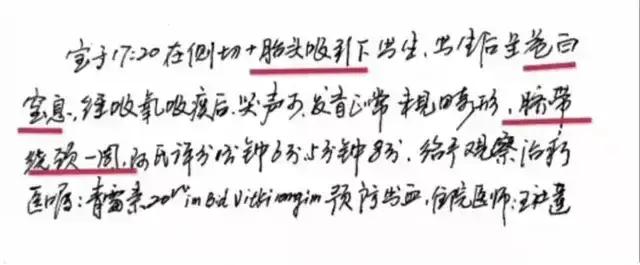 宝于17:20在侧切+胎头吸引下出生,出生后呈苍白
窒息,经吸氧吸痰后,哭声可,发育正常未见畸形,脐带
绕颈一周,阿氏评分1分钟6分,5分钟8分,给予观察治疗
医嘱:青霉素20 im Bid Vitk1 im 预防出血,住院医师:王